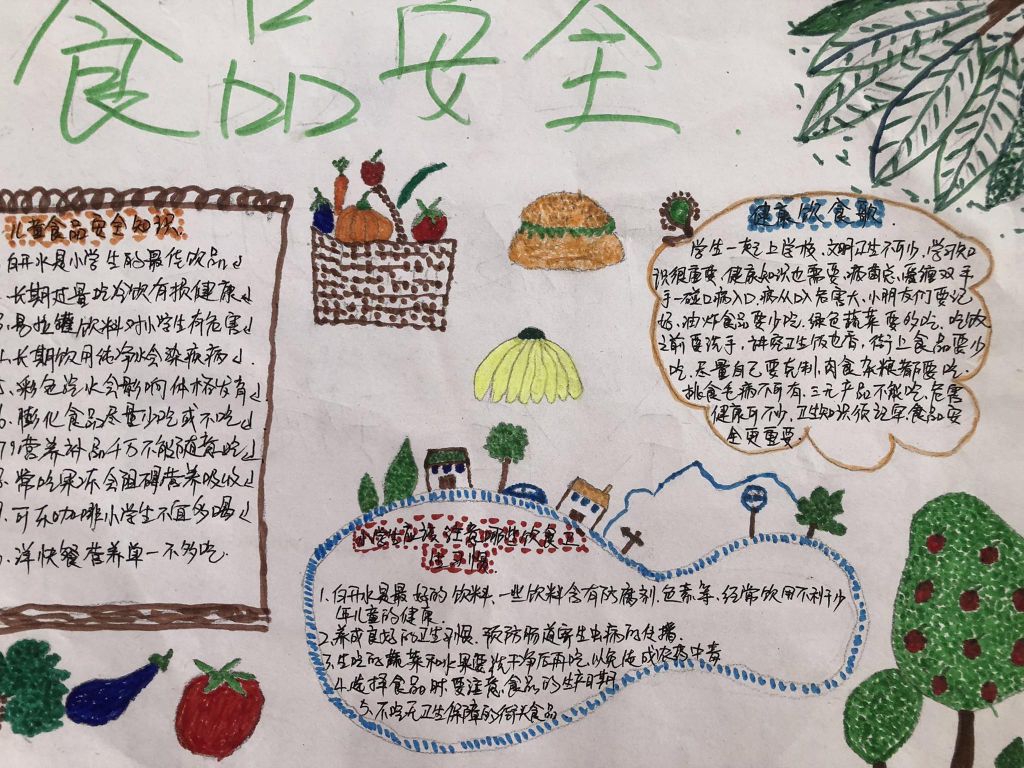 食品安全
儿童食品安全知识
白开水是小学生的最佳饮品
长期过量吃冷饮有损健康
易拉罐饮料对小学生有危害
长期饮用纯净水会染疾病
彩色汽水会影响体格发育
膨化食品尽量少吃或不吃
营养补品千万不能随意吃
常吃果冻会阻碍营养吸收
可乐咖啡小学生不宜多喝
洋快餐营养单一不多吃.
健康饮食歌
学生一起上学校、文明卫生不可少,学习知
识很重要,健康知识也需要,病菌总缠双手
手一碰口病入口,病从口入危害大,小朋友们要记
好,油炸食品要少吃.绿色蔬菜要的吃.吃饭
之前要洗手,讲究卫生饭也香,街上食品要少
吃.尽量自己要克制,肉食杂粮都要吃.
挑食毛病不可有.三元产品不能吃.危害
健康可不少.卫生知识须记牢食品安
全更重要.
小学生应该注意哪些饮食卫
生习惯.
1.白开水是最好的饮料,一些饮料含有防腐剂.色素等、经常饮用不利于少
年儿童的健康.
2.养成良好的卫生习惯.预防肠道寄生虫病的传播.
3.生吃的蔬菜和水果要洗干净后再吃,以免造成农药中毒
4.选择食品时要注意食品的生产日期
5.不吃无卫生保障的街头食品